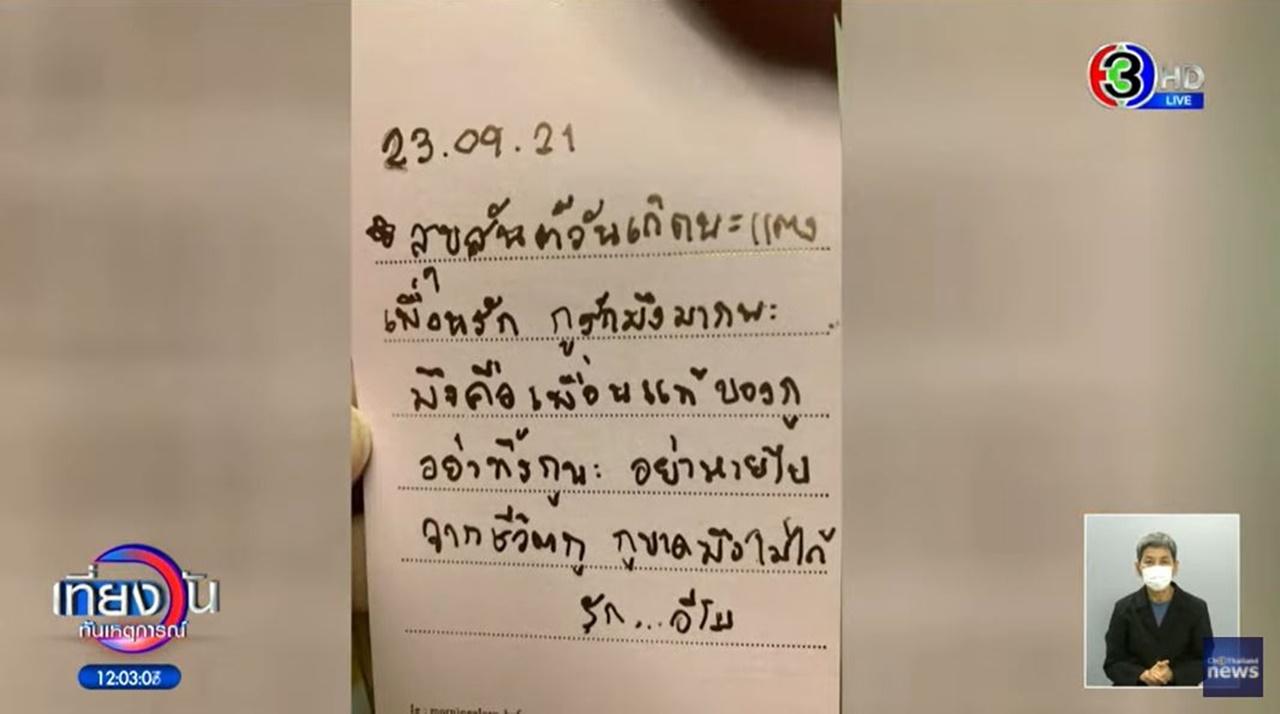 3 HD
LIVE
23.09.21
สุขสันต์วันเกิดนะแตง
เพื่อนรัก กูรักมึงมากนะ
มึงคือเพื่อนแท้ของกู
อย่าทิ้งกูนะ อย่าหายไป
จากชีวิตกู กูขาดมึงไม่ได้
รัก...อีโม
เที่ยงวัน
ทันเหตุการณ์
12:03:0
Ch3Thailand
news
Ig :